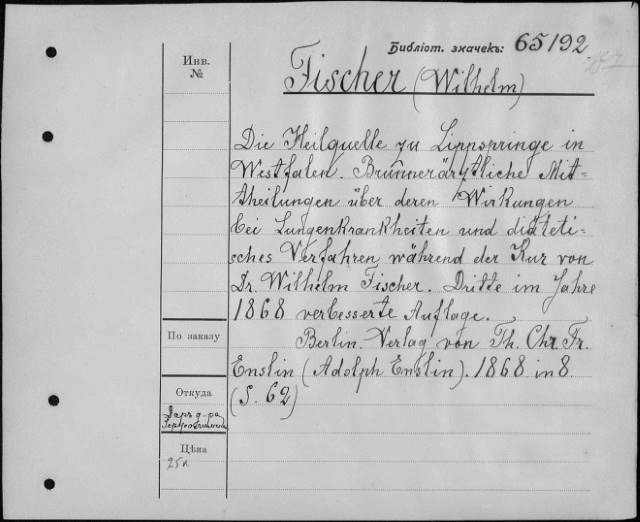 Библіот. значекъ: 65/192
Инв.
№
Fischer (Wilhelm)
Die Heilquelle zu Lippspringe in
Westfalen. Brunnenärztliche Mit-
theilungen über deren Wirkungen
bei Lungenkrankheiten und diäteti-
sches Verfahren während der Kur von
Dr. Wilhelm Fischer. Dritte im Jahre
1868 verbesserte Auflage.
Berlin. Verlag von Th. Chr. Fr.
Enslin (Adolph Enslin). 1868 in 8
(S. 62)
По заказу
Откуда
Даръ д-ра
Цѣна
25к